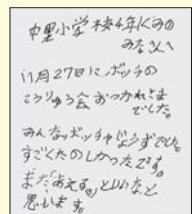 中里小学校4年1くみの
みなさんへ
11月27日に、ボッチャの
こうりゅう会おつかれさま
でした。
みんなボッチャじょうずでした。
すごくたのしかったです。
また「あえる。」といいなと
思います。